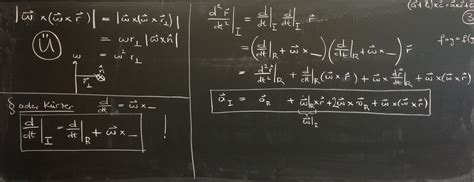 |ω⃗ × (ω⃗ × r⃗)| = |ω⃗ × (ω⃗ × r⃗⊥)|
= ω r⊥ |ω⃗ × n⃗|
= ω² r⊥
Ü
ω⃗
n⃗
r⃗⊥
§ oder Kürzer d/dt = ω⃗ × _
d/dt|_I = d/dt|_R + ω⃗ × _ !
d²r⃗/dt²|_I = d/dt|_I d/dt|_I r⃗
= (d/dt|_R + ω⃗ × _)(d/dt|_R + ω⃗ × _) r⃗
= d²r⃗/dt²|_R + d/dt|_R (ω⃗ × r⃗) + ω⃗ × dr⃗/dt|_R + ω⃗ × (ω⃗ × r⃗)
a⃗_I = a⃗_R + ω̇⃗|_R × r⃗ + 2ω⃗ × v⃗_R + ω⃗ × (ω⃗ × r⃗)
ω̇⃗|_I